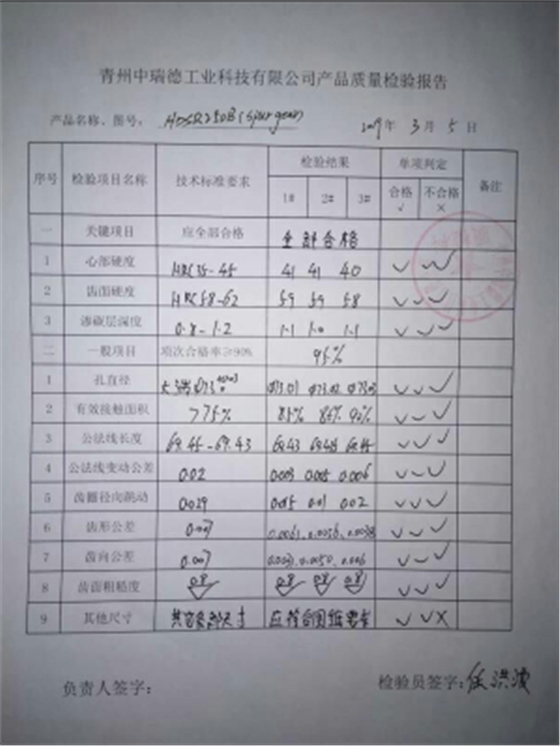 青州中瑞德工业科技有限公司产品质量检验报告
产品名称、图号: (Spur gear) 2019 年 3 月 5 日
序号 检验项目名称 技术标准要求 检验结果 单项判定 备注
1# 2# 3# 合格 √ 不合格 ×
一 关键项目 应全部合格 全部合格
1 心部硬度 HRC35-45 41 41 40 ✓ ✓ ✓
2 齿面硬度 HRC58-62 59 59 58 ✓ ✓ ✓
3 渗碳层深度 0.8-1.2 1.1 1.0 1.1 ✓ ✓ ✓
二 一般项目 项次合格率≥90% 95%
1 孔直径 大端 ✓ ✓ ✓
2 有效接触面积 >75% 85% 86% 90% ✓ ✓ ✓
3 公法线长度 69.45-69.43 69.43 ✓ ✓ ✓
4 公法线变动公差 0.02 0.003 0.005 0.006 ✓ ✓ ✓
5 齿圈径向跳动 0.029 0.015 0.01 0.02 ✓ ✓ ✓
6 齿形公差 0.007 0.0061、0.0056、 ✓ ✓ ✓
7 齿向公差 0.007 0.0050、0.006 ✓ ✓ ✓
8 齿面粗糙度 0.8 0.8 0.8 0.8 ✓ ✓ ✓
9 其他尺寸 其它各部尺寸 应符合图纸要求 ✓ ✓ X
负责人签字: 检验员签字:任洪波